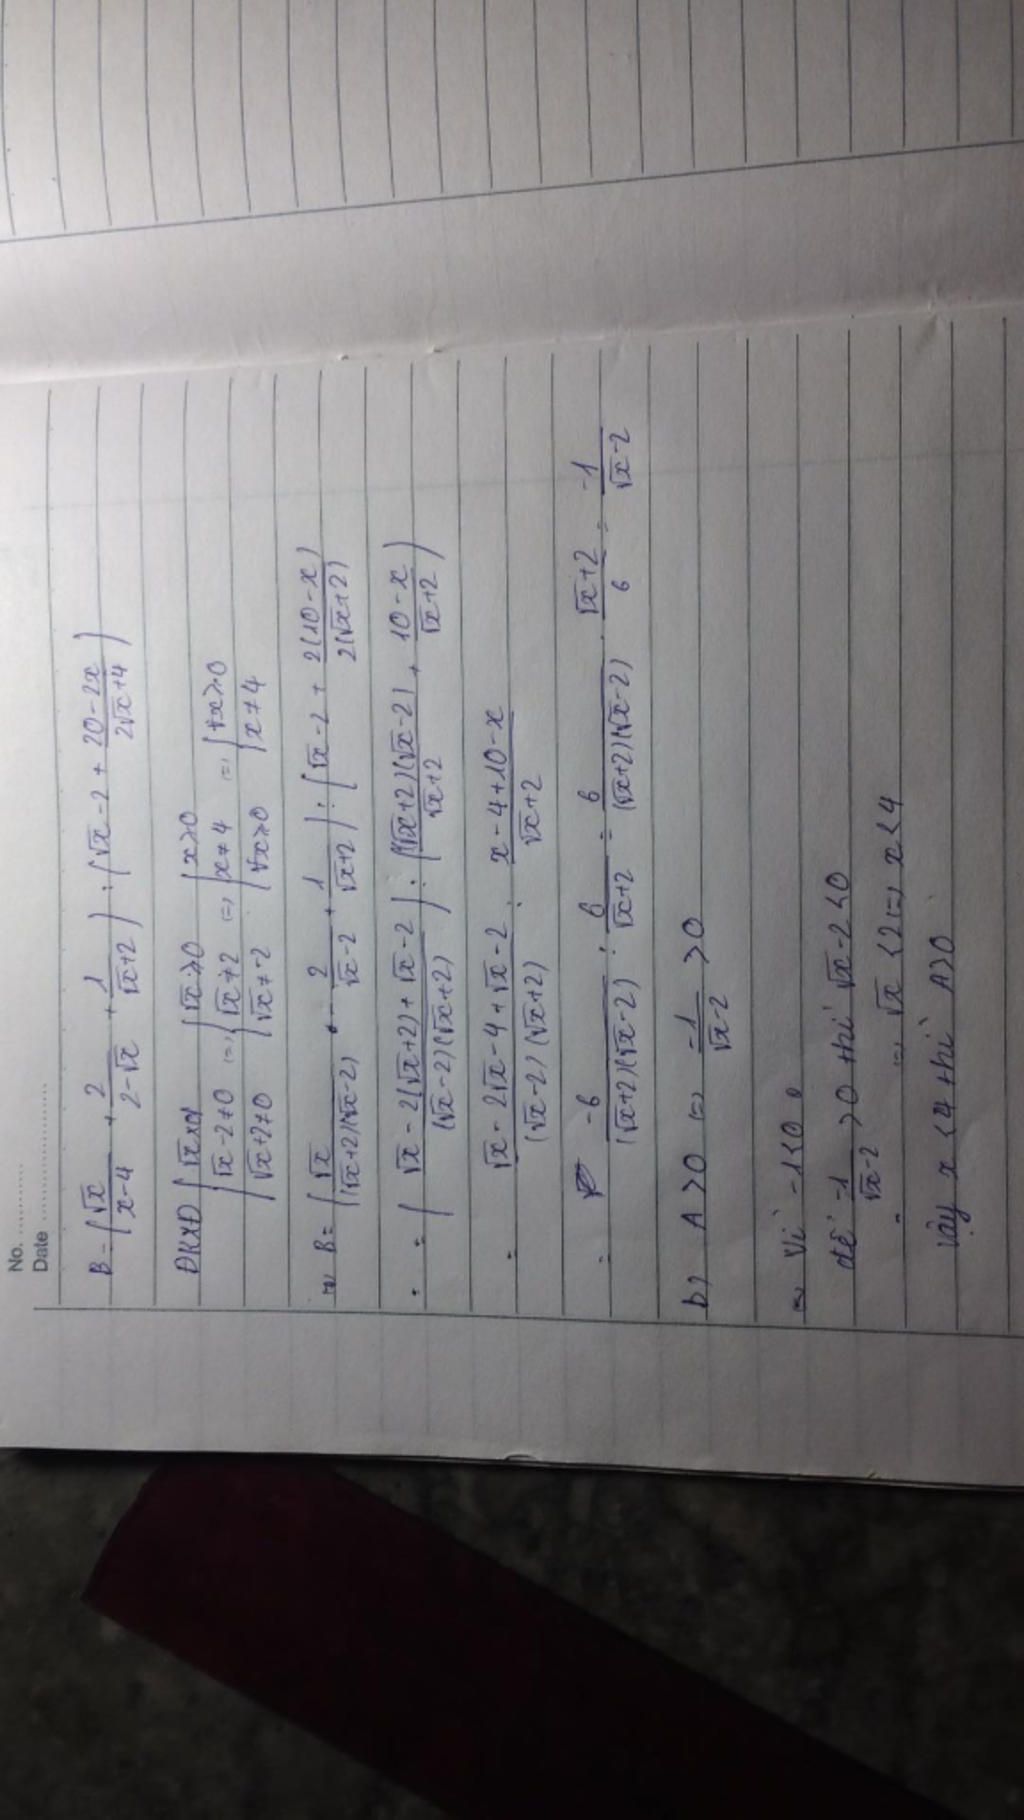 No. ..............
Date ..............
B = (√x/(x-4) + 2/(2-√x) + 1/(√x+2)) : (√x - 2 + (20-2x)/(2√x+4))
ĐKXĐ { √x ≥ 0 { √x ≥ 0 { x ≥ 0
√x - 2 ≠ 0 (=) √x ≠ 2 (=) x ≠ 4 (=) { ∀x ≥ 0
√x + 2 ≠ 0 √x ≠ -2 ∀x ≥ 0 x ≠ 4
B = (√x/((√x+2)(√x-2)) - 2/(√x-2) + 1/(√x+2)) : (√x - 2 + 2(10-x)/(2(√x+2)))
= ((√x - 2(√x+2) + √x - 2)/((√x-2)(√x+2))) : ((√x+2)(√x-2)/(√x+2) + (10-x)/(√x+2))
= (√x - 2√x - 4 + √x - 2)/((√x-2)(√x+2)) : (x - 4 + 10 - x)/(√x+2)
= -6/((√x+2)(√x-2)) : 6/(√x+2) = 6/((√x+2)(√x-2)) . (√x+2)/6 = -1/(√x-2)
b, A > 0 (=) -1/(√x-2) > 0
Vì -1 < 0
để -1/(√x-2) > 0 thì √x - 2 < 0
=) √x < 2 (=) x < 4
Vậy x < 4 thì A > 0